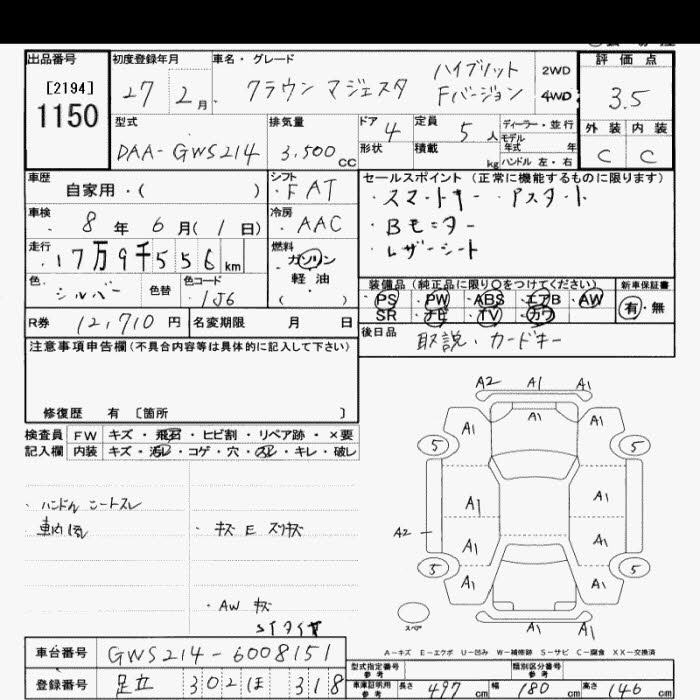 出品番号
[2194]
1150
初度登録年月
27 2月
車名・グレード
クラウン マジェスタ
ハイブリット
Fバージョン
2WD
4WD
評価点
3.5
外装 内装
C C
型式
DAA-GWS214
排気量
3,500cc
ドア 4
形状
定員 5人
積載 kg
ディーラー・並行
モデル
年式 年
ハンドル 左・右
車歴
自家用・( )
シフト
FAT
車検
8年6月(1日)
冷房
AAC
走行
17万9千556km
燃料
ガソリン
軽油
( )
色
シルバー
色替
色コード
1J6
R券 12,710円
名変期限 月 日
セールスポイント (正常に機能するものに限ります)
・スマートキー ・Pスタート
・Bモニター
・レザーシート
装備品 (純正品に限り○をつけてください)
PS・PW・ABS・エアB・AW
SR・ナビ・TV・カワ
新車保証書
有・無
後日品
取説・カードキー
注意事項申告欄(不具合内容等は具体的に記入して下さい)
修復歴 有 〔箇所 〕
検査員
記入欄
FW キズ・飛石・ヒビ割・リペア跡・×要
内装 キズ・汚レ・コゲ・穴・スレ・キレ・破レ
・ハンドル シートスレ
・キズ E スリキズ
・AW キズ
A2 A1 A1
A1 A1 A1
5 5
A1 A1
A2
A1 A1
5 5
A1 A1
A1 A1
スペア
A-キズ E-エクボ U-凹み W-補修跡 S-サビ C-腐食 XX-交換済
車台番号 GWS214-6008151
登録番号 足立 302 ほ 318
型式指定番号
参考
類別区分番号
参考
車庫証明用
参考
長さ 497cm 幅 180cm 高さ 146cm